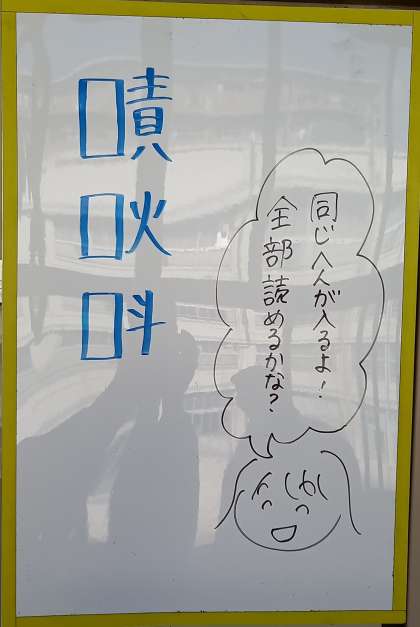 □責
□火
□斗
同じへんが入るよ！
全部読めるかな？